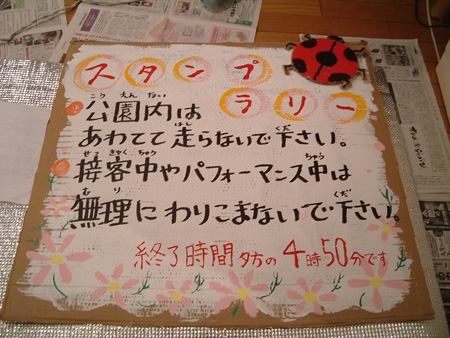 スタンプ
ラリー
こうえんない
公園内は
はし くだ
あわてて走らないで下さい。
せっきゃくちゅう ちゅう
接客中やパフォーマンス中は
むり くだ
無理にわりこまないで下さい。
終了時間 夕方の 4時50分です